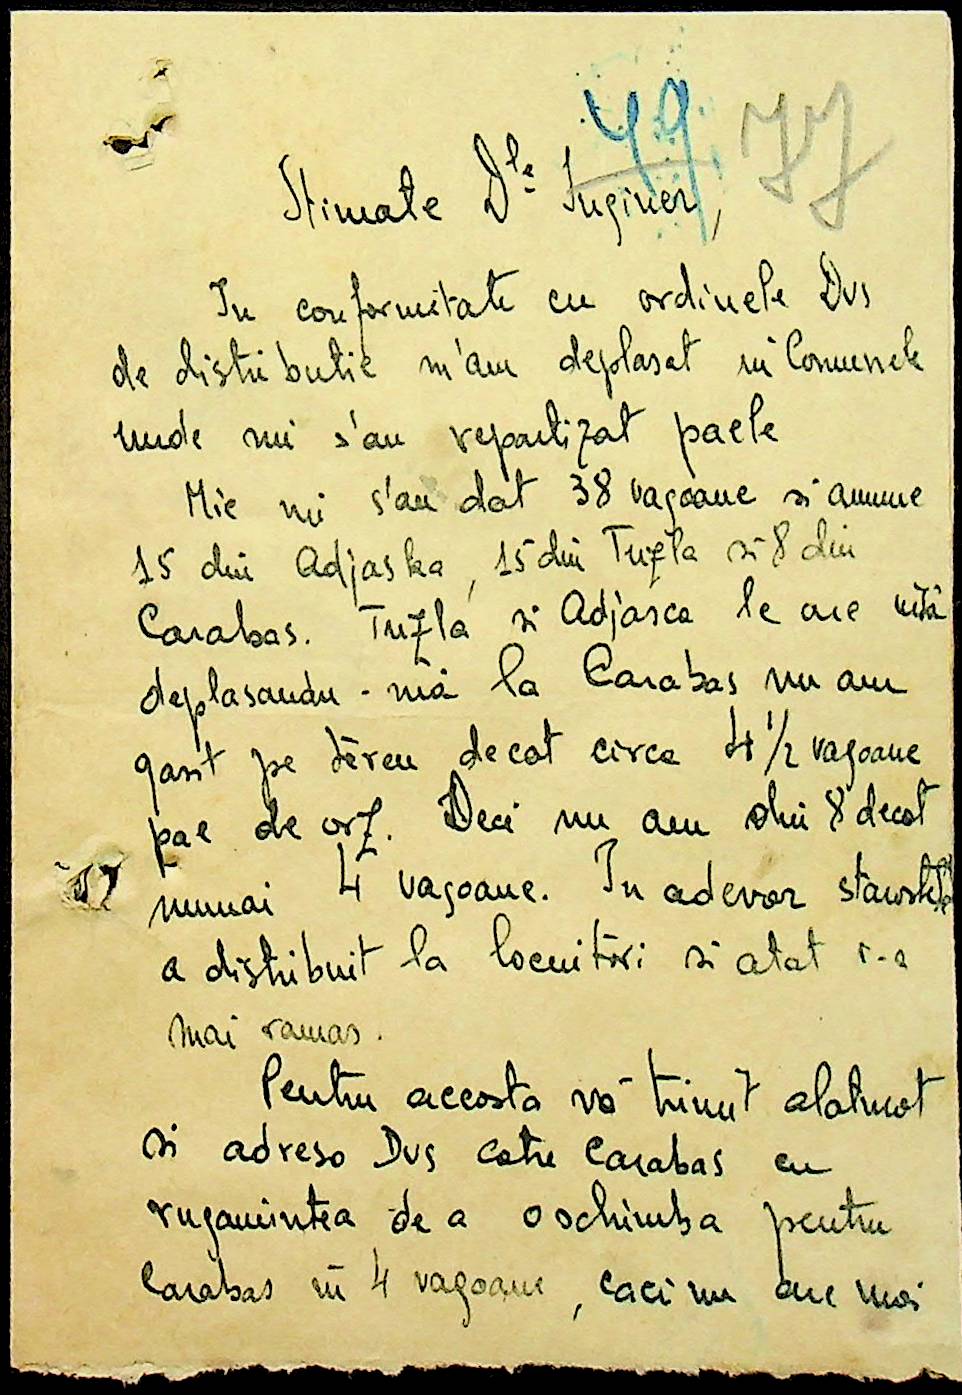 49 77
Stimate Dle Inginer,
In conformitate cu ordinele Dvs
de distributie m'am deplasat in Comunele
unde mi s'au repartizat paele
Mie mi s'au dat 38 vagoane si anume
15 din Adjaska, 15 din Tuzla si 8 din
Carabas. Tuzla si Adjasca le are
deplasandu-mă la Carabas nu am
gasit pe teren decat circa 4 1/2 vagoane
pae de orz. Deci nu am din 8 decat
numai 4 vagoane. In adevar
a distribuit la locuitori si atat i-a
mai ramas.
Pentru aceasta vă trimit alaturat
si adresa Dvs catre Carabas cu
rugamintea de a o schimba pentru
Carabas in 4 vagoane, caci nu are mai